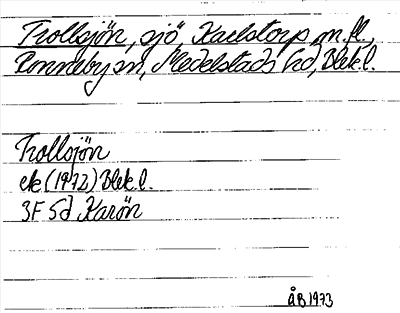 Trollsjön, sjö Karlstorp m.fl.,
Ronneby sn, Medelstads hd, Blek.l.
Trollsjön
ek (1972) Blek.l.
3F 5d Karön
ÅB 1973